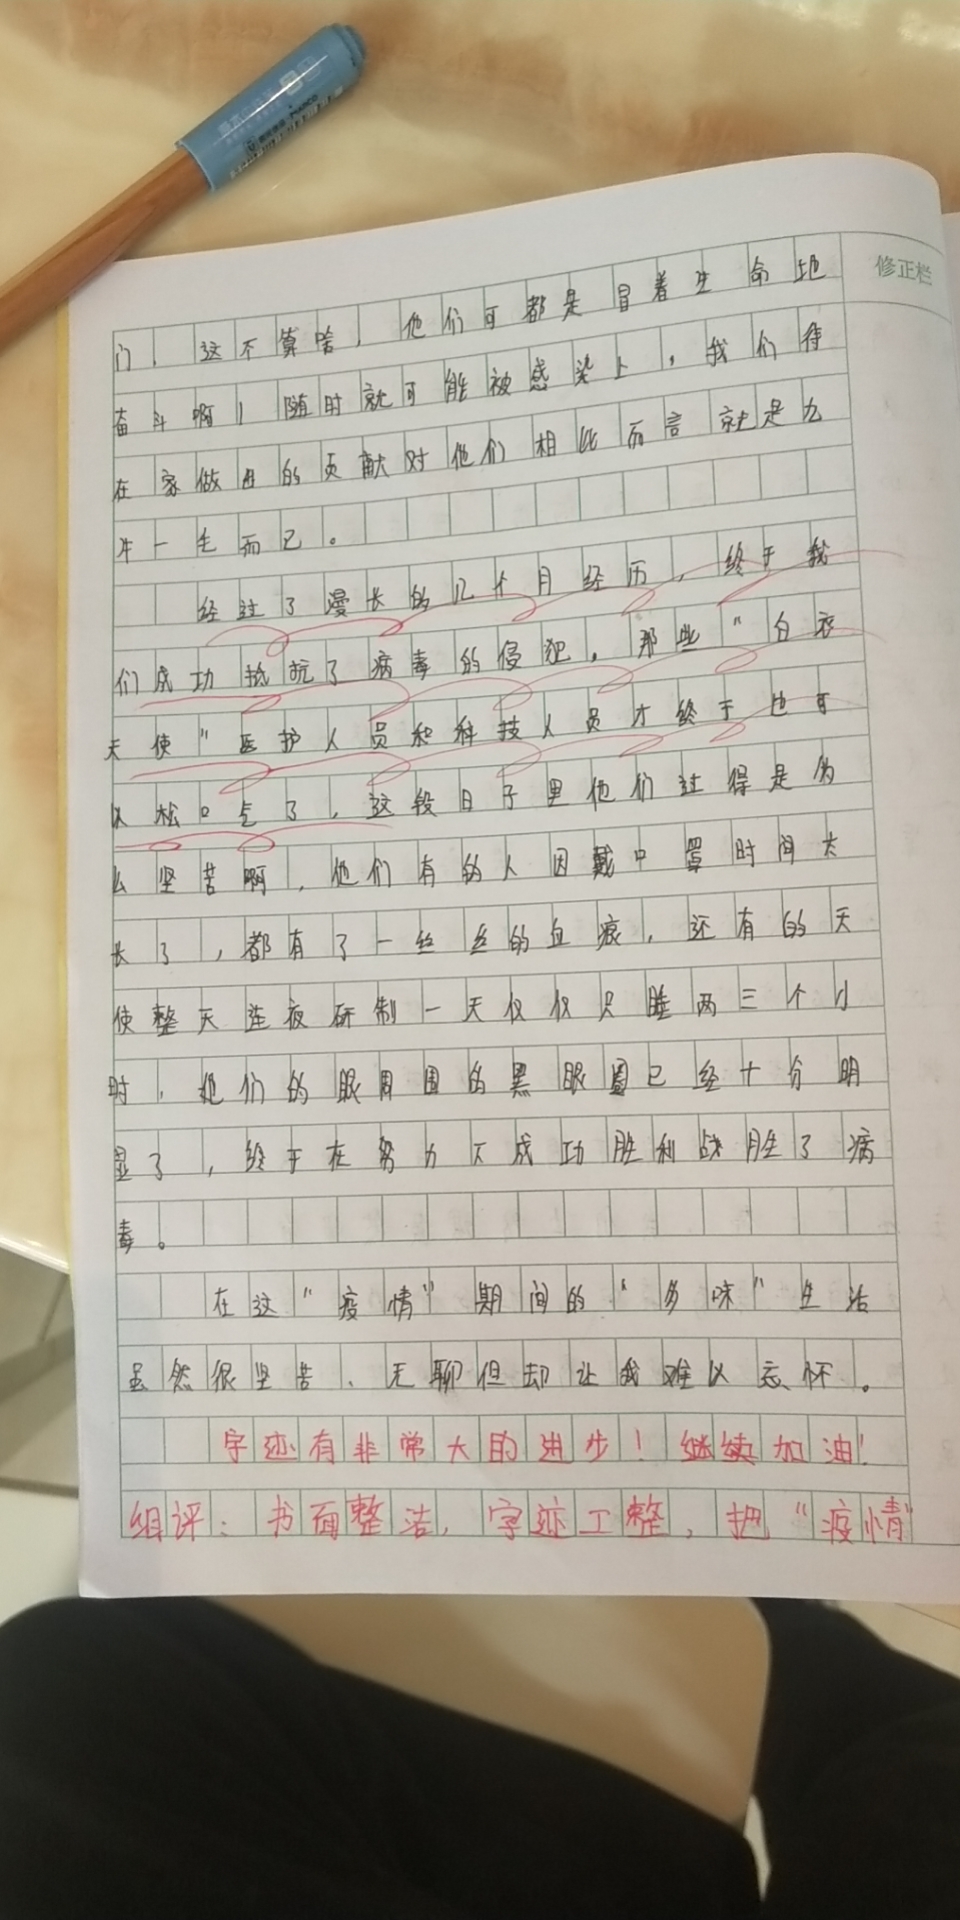 修正栏
门，这不算啥，他们可都是冒着生命地
奋斗啊！随时就可能被感染上，我们待
在家做出的贡献对他们相比而言就是九
牛一毛而已。
经过了漫长的几个月经历，终于我
们成功抵抗了病毒的侵犯。那些“白衣
天使”医护人员和科技人员才终于也可
以松口气了，这段日子里他们过得是多
么坚苦啊！他们有的人因戴口罩时间太
长了，都有了一丝丝的血痕，还有的天
使整天连夜研制一天仅仅只睡两三个小
时，他们的眼周围的黑眼圈已经十分明
显了，终于在努力下成功胜利战胜了病
毒。
在这“疫情”期间的“多味”生活
虽然很坚苦、无聊但却让我难以忘怀。
字迹有非常大的进步！继续加油！
组评：书面整洁，字迹工整，把“疫情”